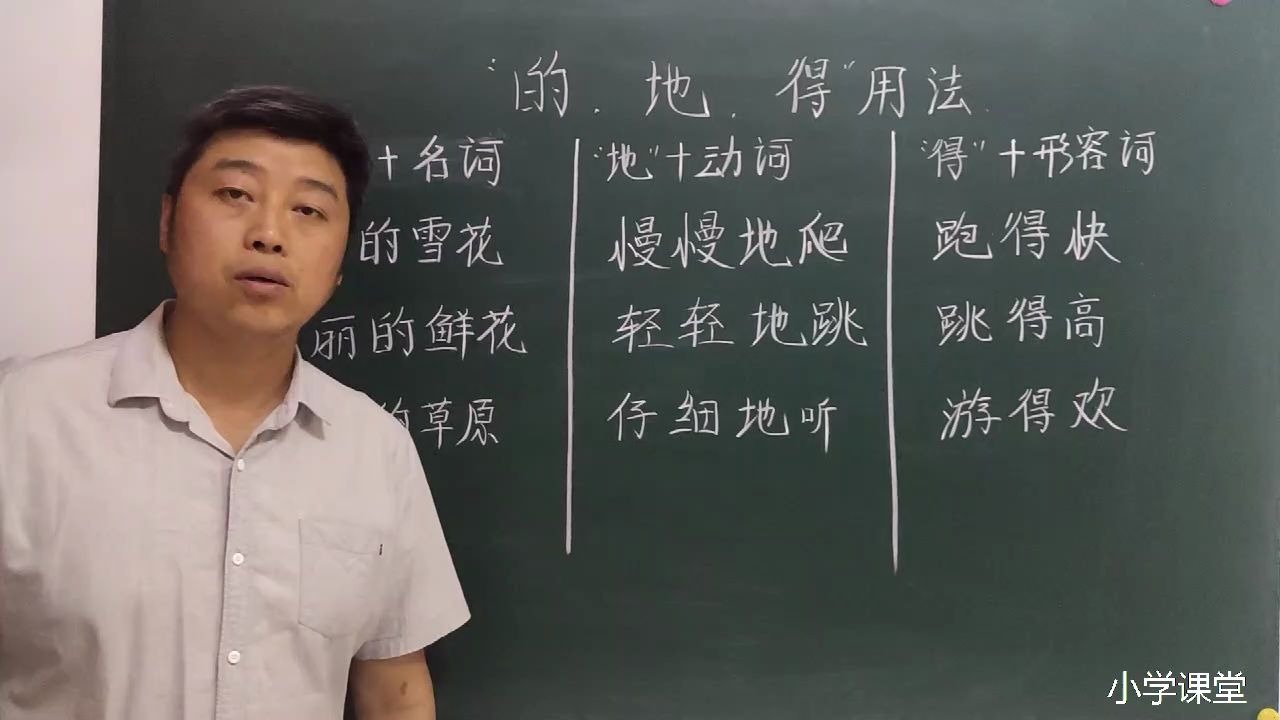 “的、地、得”用法
+名词 “地”+动词 “得”+形容词
的雪花 慢慢地爬 跑得快
丽的鲜花 轻轻地跳 跳得高
的草原 仔细地听 游得欢
小学课堂